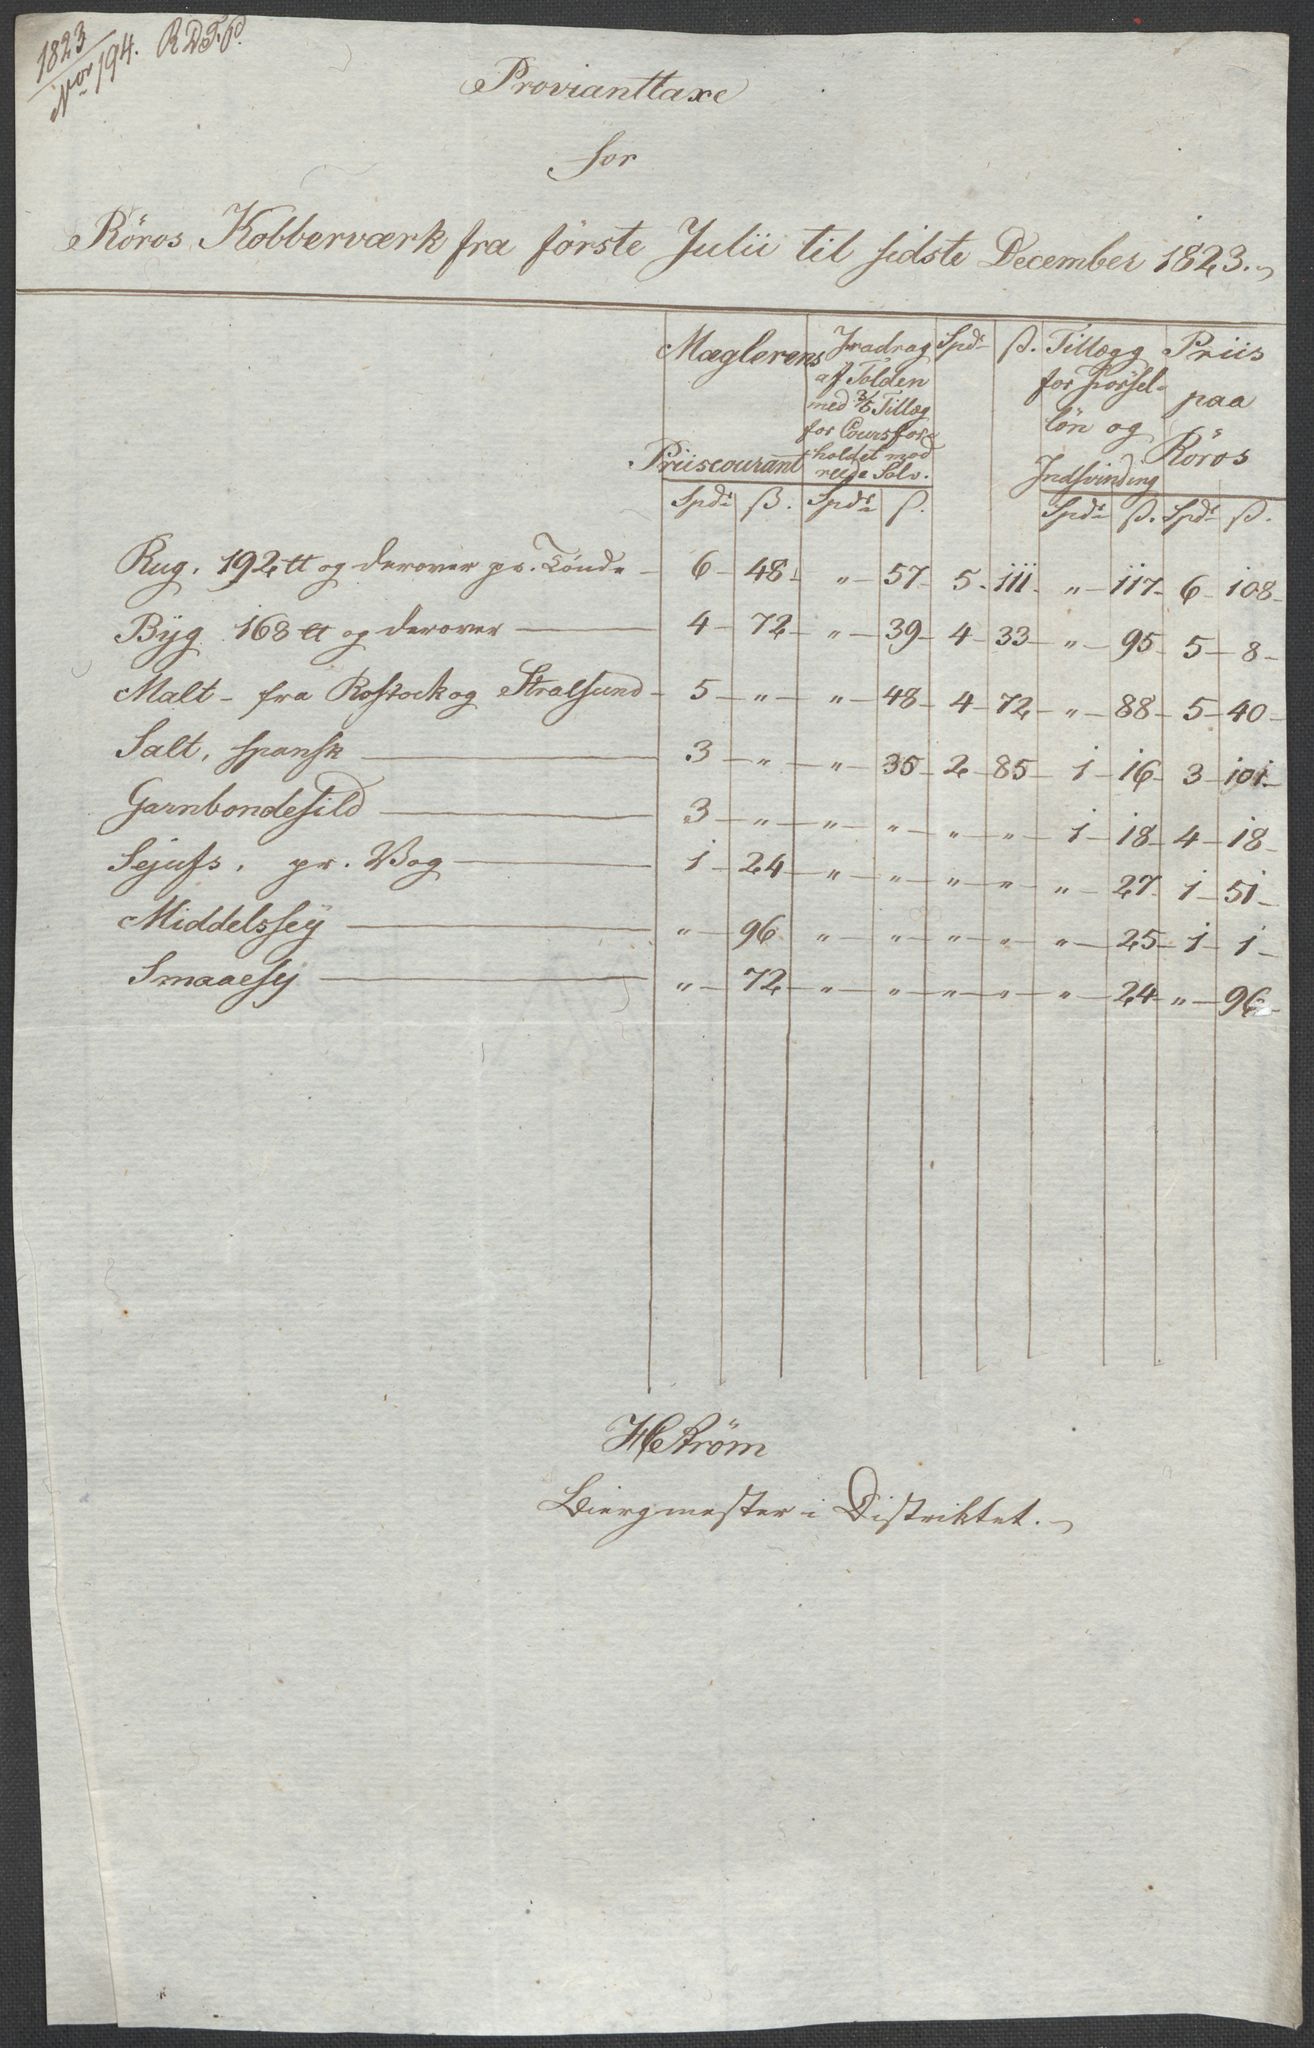 1823
Nor 194. R D T. P.
Provianttaxe
for
Röros Kobberværk fra förste Julii til sidste December 1823.
Mæglerens Priiscourant | Fradrag af Tolden med 3/5 Tillæg for Coursforholdet mod reede Sølv. | Spdr ß. | Tillægg for Förselslön og Indsvinding | Priis paa Röros
Spdr ß. Spdr ß. Spdr ß. Spdr ß.
Rug, 192 ℔ og derover pr. Tönde 6 48 " 57 5 111 " 117 6 108
Byg 168 ℔ og derover 4 72 " 39 4 33 " 95 5 8
Malt fra Rostock og Stralsund 5 " " 48 4 72 " 88 5 40
Salt, spansk 3 " " 35 2 85 1 16 3 101
Garnbondesild 3 " " " " " 1 18 4 18
Sejufs, pr. Vog 1 24 " " " " " 27 1 51
Middelssey " 96 " " " " " 25 1 1
Smaaesej " 72 " " " " " 24 " 96
HC Ström
Biergmester i Distriktet.